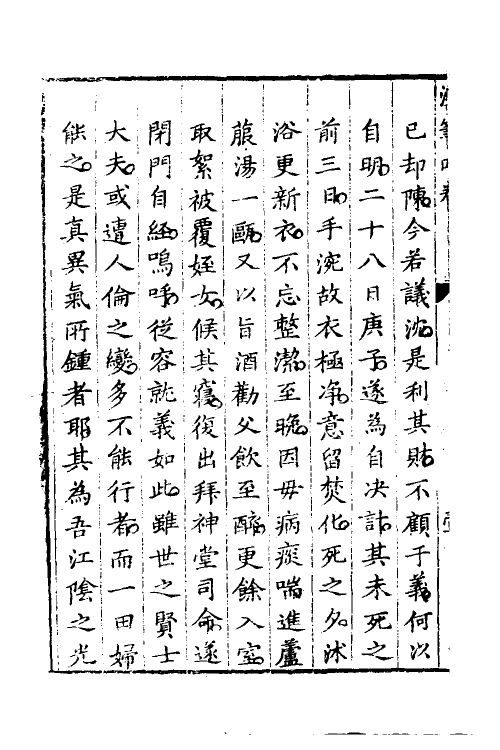 已却陳今若議沈是利其賄不顧于義何以
自明二十八日庚子遂為自决計其未死之
前三日手浣故衣極净意留焚化死之夕沐
浴更新衣不忘整潔至晚因毋病痰喘進蘆
菔湯一甌又以旨酒勸父飲至醉更餘入室
取絮被覆姪女候其寢復出拜神堂司命遂
閉門自經嗚呼從容就義如此雖世之賢士
大夫或遭人倫之變多不能行者而一田婦
能之是真異氣所鍾者耶其為吾江陰之光